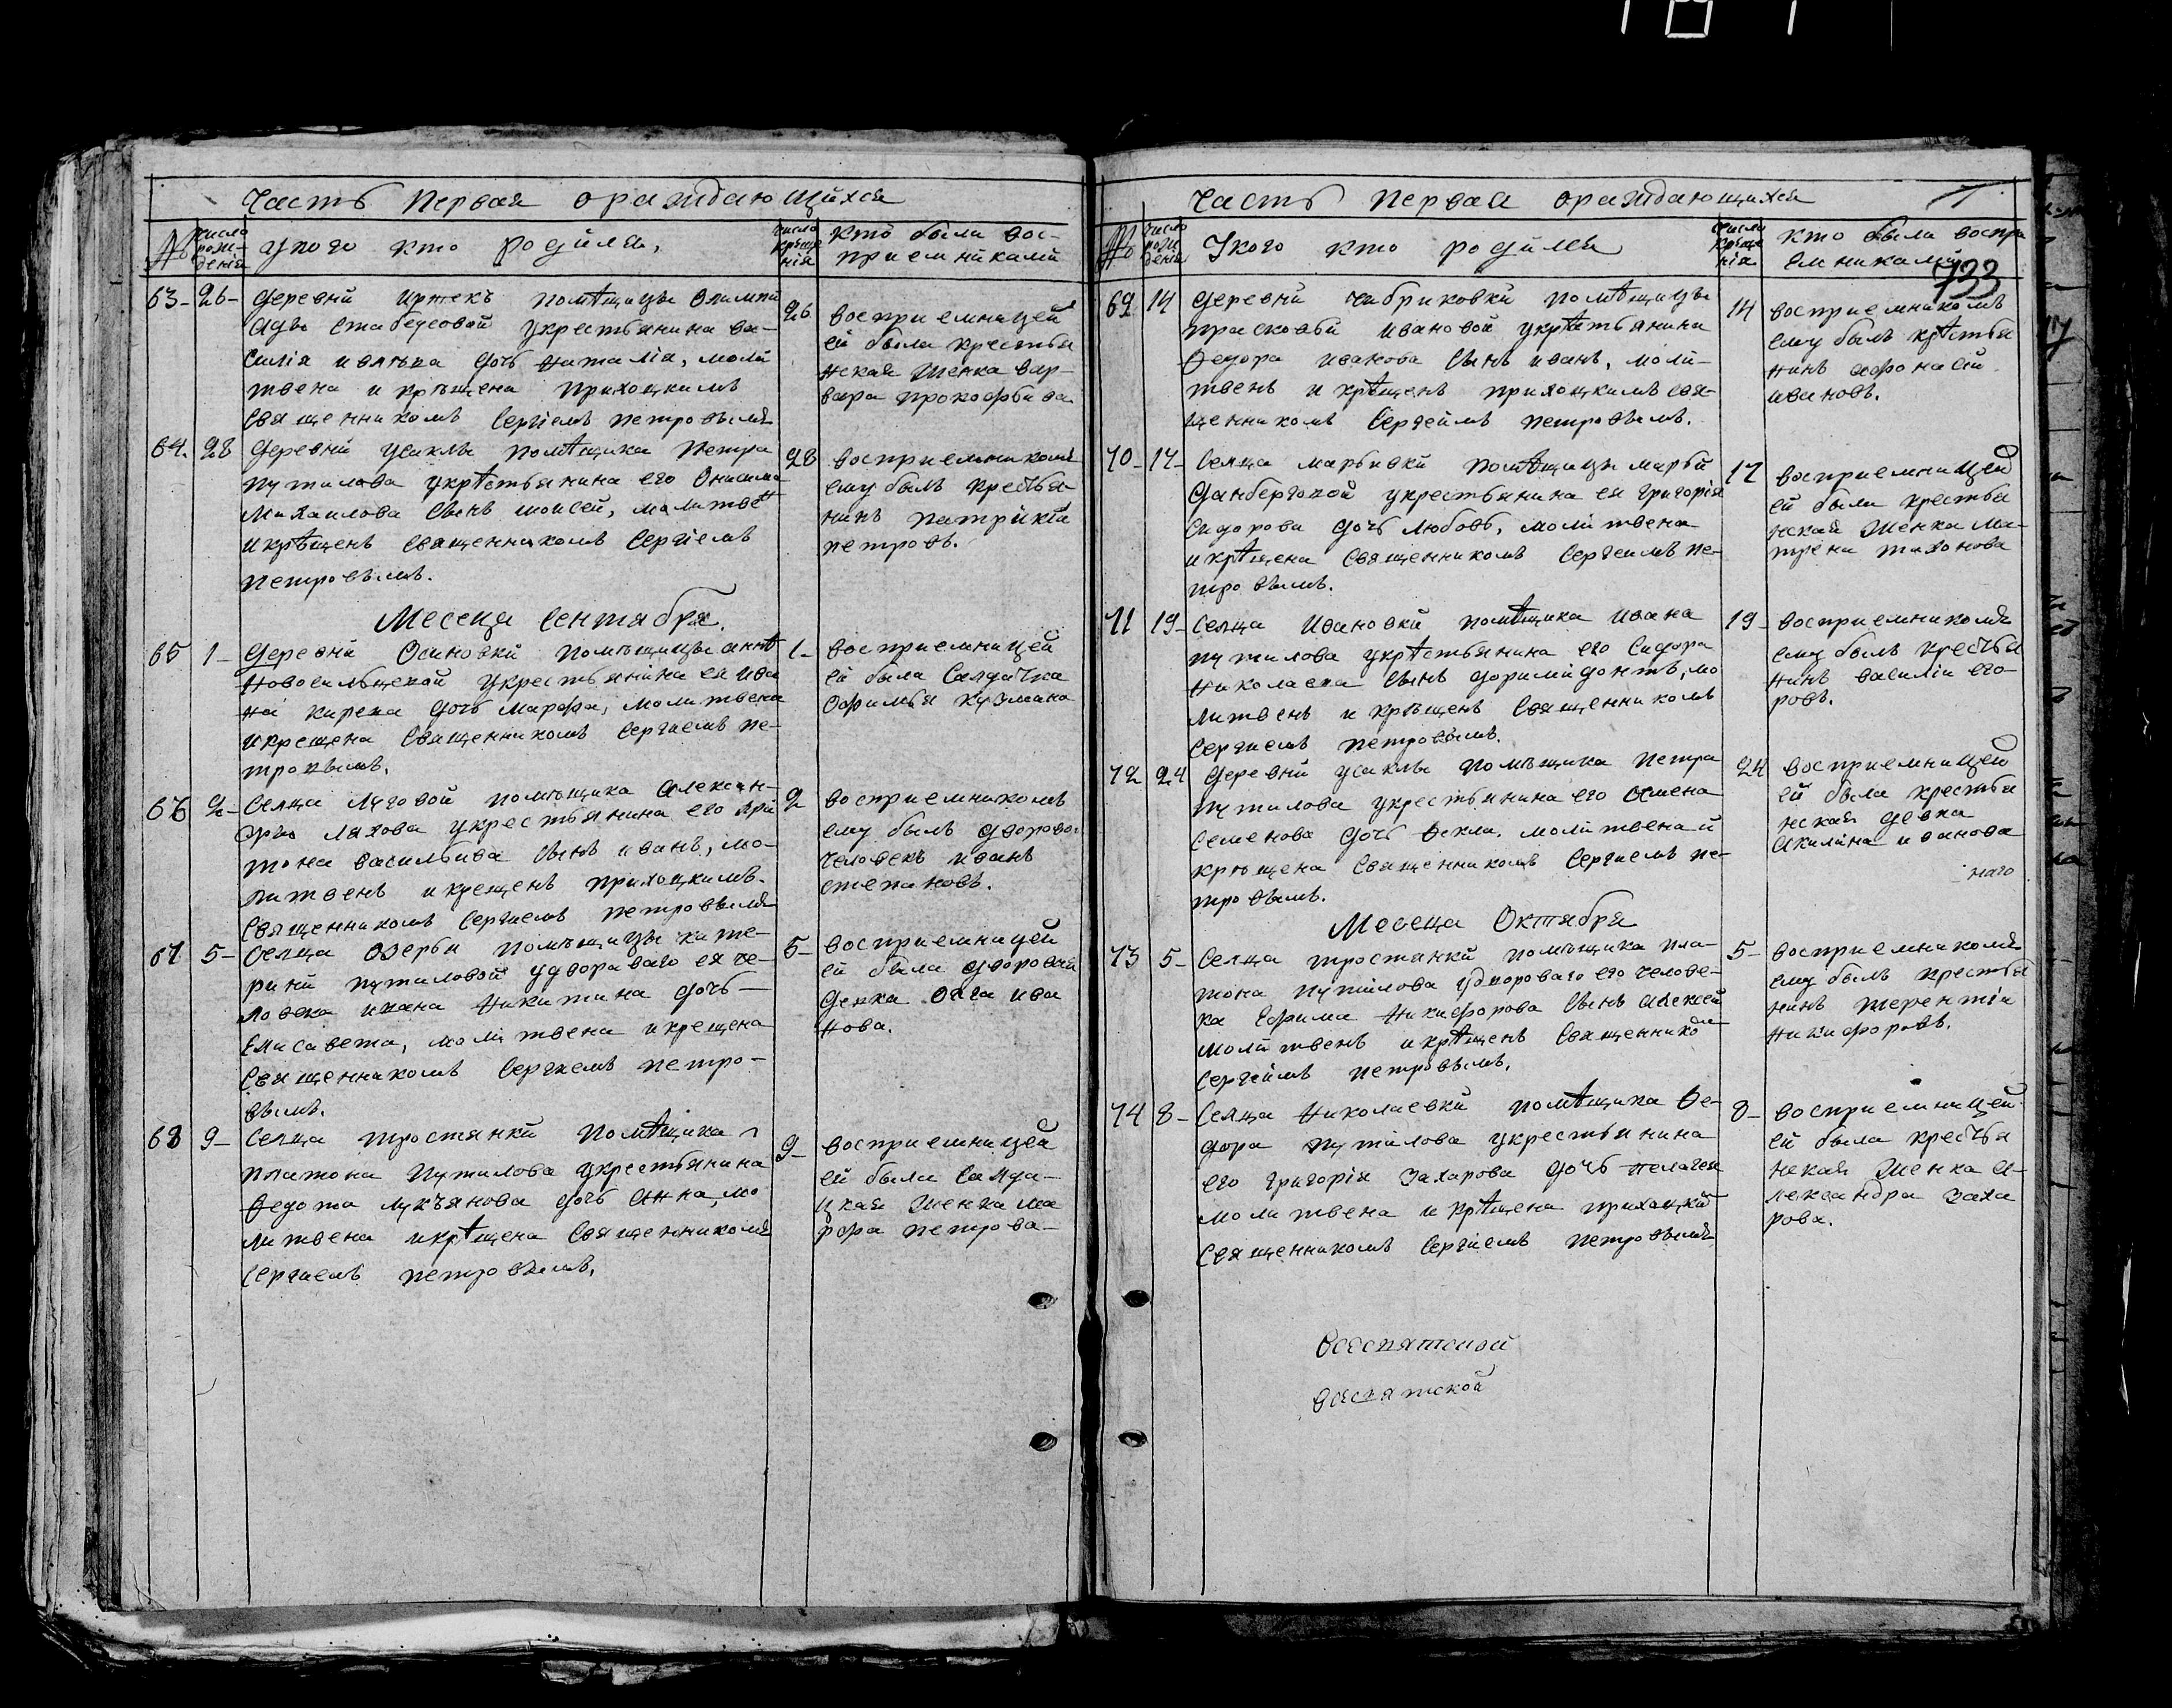 Часть Первая ораждающихся
№
число рож-денія
у кого кто родился,
число креще нія
кто были вос-
приемниками
63-
26-
деревни Иртекъ помѣщицы Олимпи
ады укрестьянина ва-
силія дочь Наталія, моли
твена и крѣщена приходцкимъ
священникомъ Сергіемъ петровымъ
26
восприемницей
ей была крестья
нская женка вар-
вара прокофьива
64.
28
деревни Усаклы помѣщика Петра
путилова укрѣстьянина его Онисима
Михаилова сынъ моисей, молитвѣ
и крѣщенъ священникомъ Сергіемъ
петровымъ.
28
восприемникомъ
ему былъ крестья-
нинъ патрикѣи
петровъ.
Месеца Сентября.
65
1-
деревни Осиновки помѣщицы аннѣ
Новосильцекой укрестьянина ея ива
на киреева дочь марфа, молитвена
и крещена священникомъ Сергиемъ пе-
тровымъ.
1-
восприемницей
ей была Салдатка
Офимья кузмина
66
2-
Селца Луговой помѣщика Алексан-
дра Ляхова укрестьянина его
тона василыва сынъ иванъ, мо-
литвенъ и крещенъ приходцкимъ
священникомъ Сергиемъ петровымъ
2
восприемникомъ
ему былъ дворовой
человекъ иванъ
степановъ.
67
5-
Селца Озерки помѣщицы кате-
рини путиловой удвораваго ея че-
ловека ивана Никитина дочь-
Елисавета, молитвена и крещена
священникомъ Сергиемъ петро-
вымъ.
5-
восприемницей
ей была дворовая
девка Олга ива
нова.
68
9-
Селца тростянки помѣщика
платона Путилова укрестьянина
Ѳедота лукъянова дочь Анна, мо
литвена и крѣщена священникомъ
Сергиемъ петровымъ.
9-
восприемницей
ей была Салда-
цкая женка ма
рфа петрова-
Часть первая ораждающихся
№
число рож денія
У кого кто родился
число креще нія
кто были воспри
емниками
733
69
14
деревни чибриковки помѣщицы
прасковьи ивановой укрѣстьянина
Ѳедора иванова сынъ иванъ, моли-
твенъ и крѣщенъ приходцкимъ свя-
щенникомъ Сергеймъ петровымъ.
14
восприемникомъ
ему былъ крѣстья
нинъ афонасій
ивановъ.
70-
17-
Селца марьивки помѣщицы марьи
Данберговой укрестьянина ея григорія
Сидорова дочь любовь, молитвена
и крѣщена священникомъ Сергеимъ пе-
тровымъ.
17
восприемницей
ей была крестья
нская женка ма-
трена тихонова
71
19-
Селца Ивановки помѣщика ивана
путилова укрѣстьянина его Сидора
Николаева сынъ доримидонтъ, мо
литвенъ и крѣщенъ священникомъ
Сергиемъ петровымъ.
19-
восприемникомъ
ему былъ крестья
нинъ василіи его-
ровъ.
72
24
деревни усаклы помѣщика петра
путилова укрестьянина его
Семенова дочь Ѳекла, молитвена и
крѣщена священникомъ Сергиемъ пе-
тровымъ.
24
восприемницей
ей была крестья
нская девка
Акилина иванова
наго
Месеца Октября
73
5-
Селца тростянки помѣщика пла-
тона путилова удвороваго его челове-
ка Ефима Никифорова сынъ алексей
молитвенъ и крѣщенъ священникомъ
Сергеймъ петровымъ.
5-
восприемникомъ
ему былъ крестья
нинъ терентіи
Никифоровъ.
74
8-
Селца Николаевки помѣщика Ѳе-
дора путилова укрестьянина
его григорія захарова дочь пелагея
молитвена и крѣщена приходцкимъ
священникомъ Сергіемъ петровымъ
8-
восприемницей
ей была крестья
нская женка а-
лександра заха
рова.